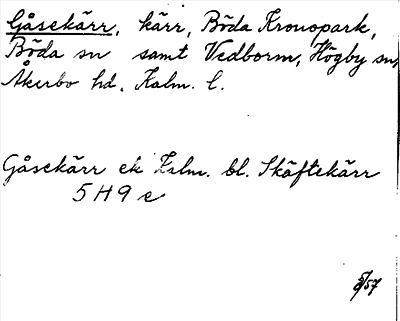 Gåsekärr, kärr, Böda Kronopark,
Böda sn samt Vedborm, Högby sn,
Åkerbo hd, Kalm. l.
Gåsekärr ek Kalm. bl. Skäftekärr
5 H 9 e